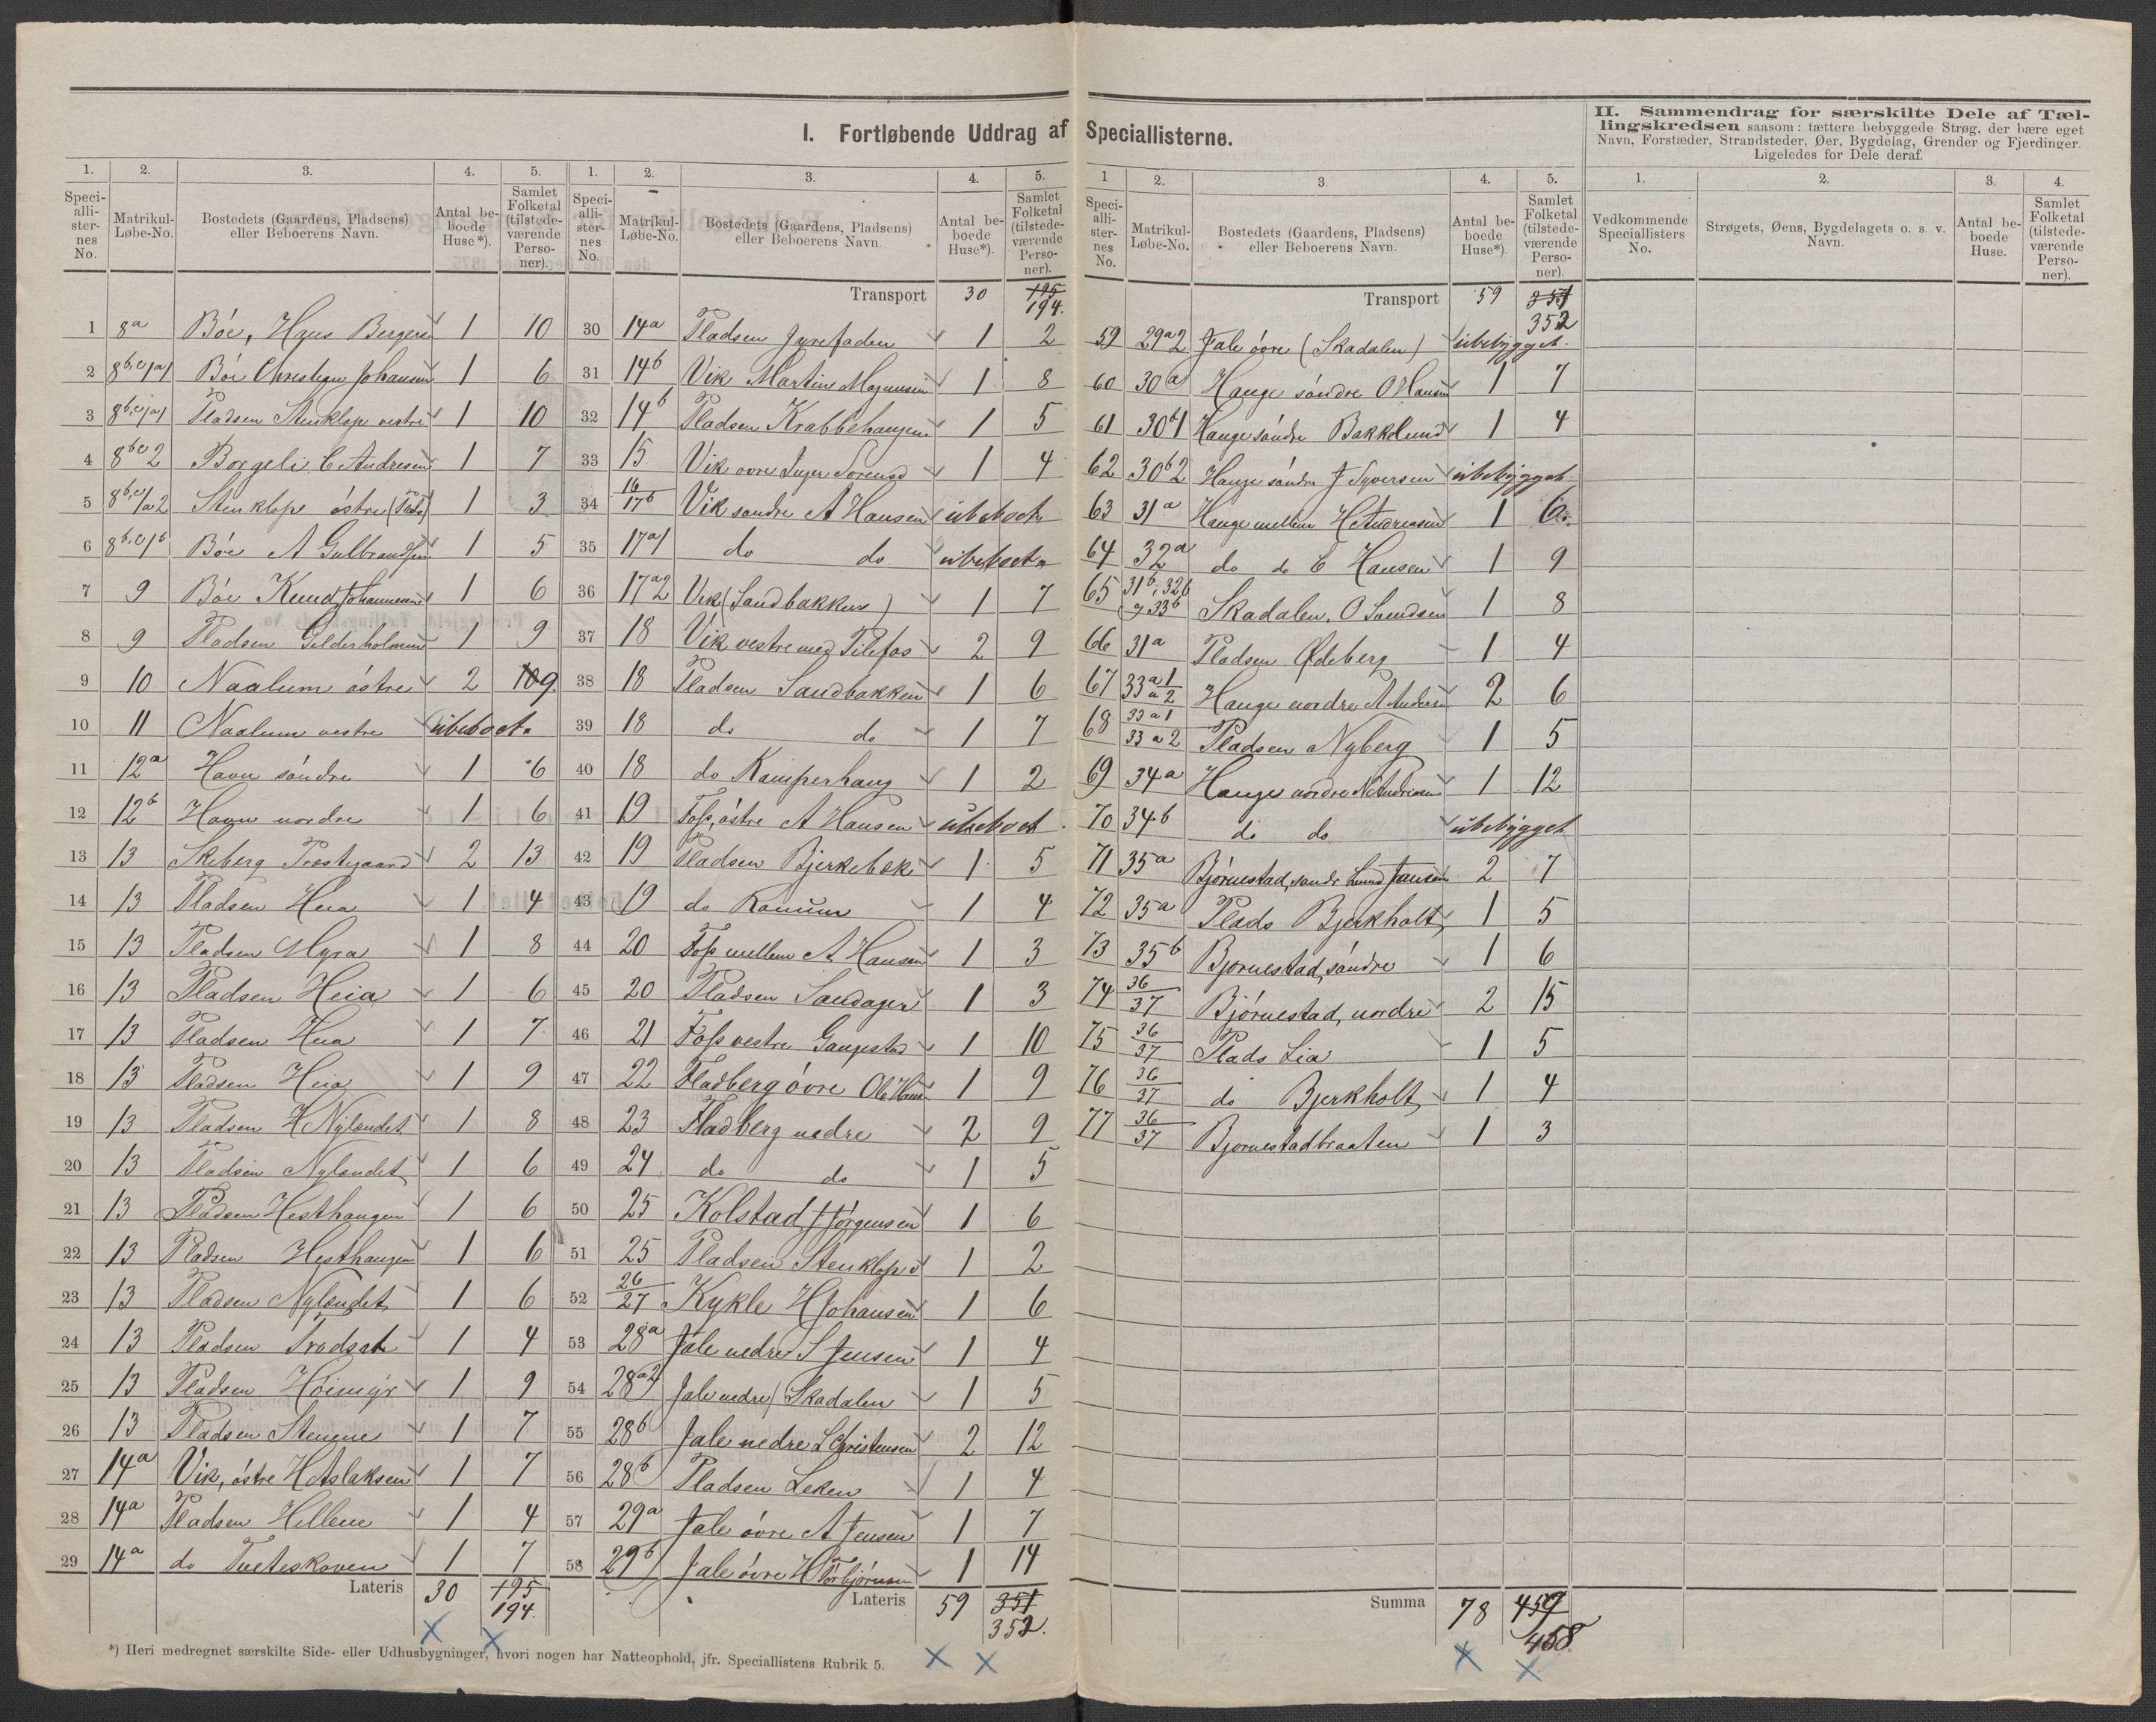 I. Fortløbende Uddrag af Speciallisterne.
II. Sammendrag for særskilte Dele af Tæl-
lingskredsen saasom: tættere bebyggede Strøg, der bære eget
Navn, Forstæder, Strandsteder, Øer, Bygdelag, Grender og Fjerdinger.
Ligeledes for Dele deraf.
1. 2. 3. 4. 5.
Speci-alli-ster-nes No. Matrikul-Løbe-No. Bostedets (Gaardens, Pladsens) eller Beboerens Navn. Antal be-boede Huse*). Samlet Folketal (tilstede-værende Perso-ner).
1 8a Bóe, Hans 1 10
2 8b,c/a1 Bóe Christian Johansen 1 6
3 8b,c/a1 Pladsen Stenklop vestre 1 10
4 8bc2 Borgeli C Andresen 1 7
5 8b,c/a2 Stenklop óstre (Plads) 1 3
6 8b,c/b Bóe A Gulbrandsen 1 5
7 9 Bóe Knud Johannesen 1 6
8 9 Pladsen Gelderholmen 1 9
9 10 Naalum óstre 2 10 9.
10 11 Naalum vestre ubeboet.
11 12a Havn sóndre 1 6
12 12b Havn nordre 1 6
13 13 Skeberg Præstegaard 2 13
14 13 Pladsen Heia 1 4
15 13 Pladsen Myra 1 8
16 13 Pladsen Heia 1 6
17 13 Pladsen Heia 1 7
18 13 Pladsen Heia 1 9
19 13 Pladsen H Nylandet 1 8
20 13 Pladsen Nylandet 1 6
21 13 Pladsen Hesthaugen 1 6
22 13 Pladsen Hesthaugen 1 6
23 13 Pladsen Nylandet 1 6
24 13 Pladsen 1 4
25 13 Pladsen Hóimyr 1 9
26 13 Pladsen Stenene 1 7
27 14a Vik, óstre H Aslaksen 1 7
28 14a Pladsen Hellene 1 4
29 14a do Tueteskoven 1 7
Lateris 30 195
194.
1. 2. 3. 4. 5.
Speci-alli-ster-nes No. Matrikul-Løbe-No. Bostedets (Gaardens, Pladsens) eller Beboerens Navn. Antal be-boede Huse*). Samlet Folketal (tilstede-værende Perso-ner).
Transport 30 195
194.
30 14a Pladsen 1 2
31 14b Vik Martin Magnusen 1 8
32 14b Pladsen Krabbehaugen 1 5
33 15 Vik ovre Inger Sorensd 1 4
34 16/17b Vik sondre A Hansen ubeboet
35 17a1 do do ubeboet
36 17a2 Vik (Sandbakken) 1 7
37 18 Vik vestre med Filefos 2 9
38 18 Pladsen Sandbakken 1 6
39 18 do do 1 7
40 18 do Kamperhaug 1 2
41 19 Foss, óstre A Hansen ubeboet.
42 19 Pladsen Bjerkebæk 1 5
43 19 do 1 4
44 20 Foss mellem A Hansen 1 3
45 20 Pladsen Sandager 1 3
46 21 Foss vestre Gaugestad 1 10
47 22 Fladberg óvre Ole Hans 1 9
48 23 Fladberg nedre 2 9
49 24 do do 1 5
50 25 Kolstad J Jórgensen 1 6
51 25 Pladsen Stenklop 1 2
52 26/27 Kykle H Johansen 1 6
53 28a Jale nedre S Jensen 1 4
54 28a2 Jale nedre (Skadalen 1 5
55 28b Jale nedre L Christensen 2 12
56 28b Pladsen Leken 1 4
57 29a Jale óvre A Jensen 1 7
58 29b Jale óvre H Torbjórnsen 1 14
Lateris 59 351
352.
1 2. 3. 4. 5.
Speci-alli-ster-nes No. Matrikul-Løbe-No. Bostedets (Gaardens, Pladsens) eller Beboerens Navn. Antal be-boede Huse*). Samlet Folketal (tilstede-værende Perso-ner).
Transport 59 351
352
59 29a2 Jale óvre (Skadalen) ubebygget.
60 30a Hauge sóndre O Hansen 1 7
61 30b1 Hauge sóndre Bakkelund 1 4
62 30b2 Hauge sóndre J Syversen ubebygget.
63 31a Hauge mellem H Andreasen 1 6.
64 32a do do C Hansen 1 9
65 31b, 32b og 33b Skadalen, O 1 8
66 31a Pladsen Ødeberg 1 4
67 33a1/a2 Hauge nordre A Anders 2 6
68 33a1/33a2 Pladsen Nyberg 1 5
69 34a Hauge nordre N Andreasen 1 12
70 34b do do ubebygget
71 35a Bjórnestad, sóndr Lund Jansen 2 7
72 35a Plads Bjerkholt 1 5
73 35b Bjornestad, sóndre 1 6
74 36/37 Bjórnestad, nordre 2 15
75 36/37 Plads Lia 1 5
76 36/37 do Bjerkholt 1 4
77 36/37 Bjornestadbraaten 1 3
Summa 78 459
458
1. 2. 3. 4.
Vedkommende Speciallisters No. Strøgets, Øens, Bygdelagets o. s. v. Navn. Antal be-boede Huse. Samlet Folketal (tilstede-værende Perso-ner).
*) Heri medregnet særskilte Side- eller Udhusbygninger, hvori nogen har Natteophold, jfr. Speciallistens Rubrik 5.